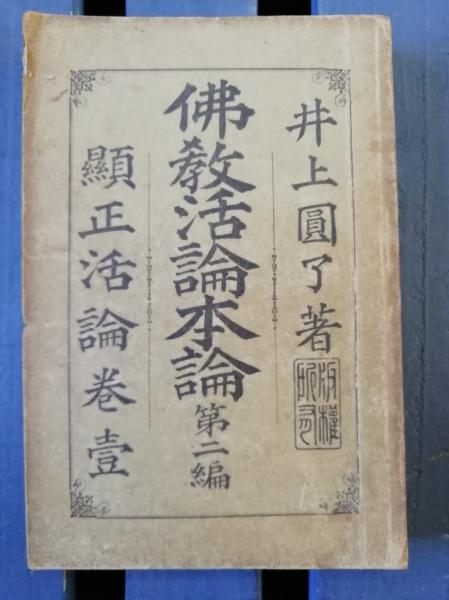 井上圓了著
版權所有
佛教活論本論
第二編
顯正活論卷壹